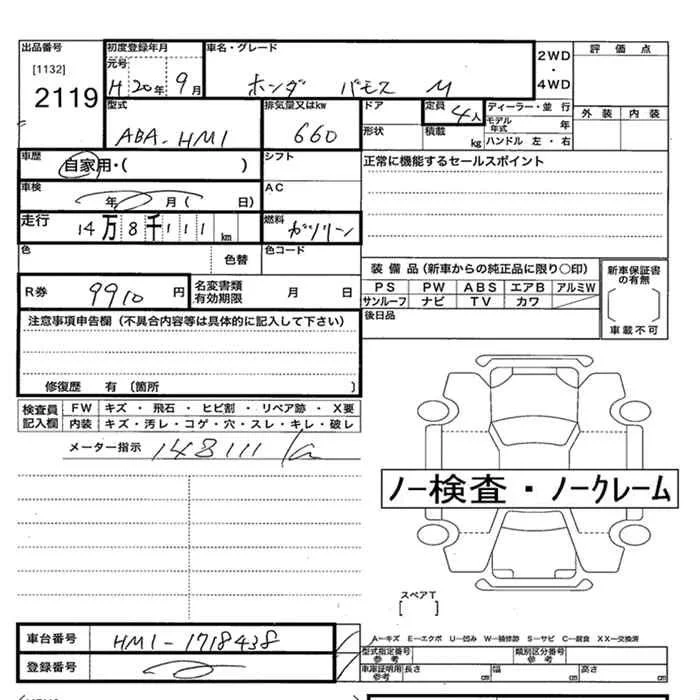 出品番号 初度登録年月 車名・グレード 評価点
[1132] 元号 2WD
2119 H 20年 9月 ホンダ バモス M ・
4WD
型式 排気量又はkw ドア 定員 ディーラー・並行 外装 内装
ABA-HM1 660 4人 モデル年式 年
形状 積載 kg ハンドル 左・右
車歴 自家用・( ) シフト 正常に機能するセールスポイント
車検 年 月( 日) AC
走行 14万8千111km 燃料 ガソリン
色 色替 色コード
装備品(新車からの純正品に限り○印) 新車保証書の有無
R券 9910円 名変書類有効期限 月 日 PS PW ABS エアB アルミW
サンルーフ ナビ TV カワ 車載不可
注意事項申告欄(不具合内容等は具体的に記入して下さい) 後日品
修復歴 有 〔箇所 〕
検査員記入欄 FW キズ・飛石・ヒビ割・リペア跡・X要
内装 キズ・汚レ・コゲ・穴・スレ・キレ・破レ
メーター指示 148111
ノー検査・ノークレーム
スペアT
[ ]
車台番号 HM1-1718438
A―キズ E―エクボ U―凹み W―補修跡 S―サビ C―腐食 XX―交換済
型式指定番号参考 類別区分番号参考
登録番号 車庫証明用参考 長さ cm 幅 cm 高さ cm